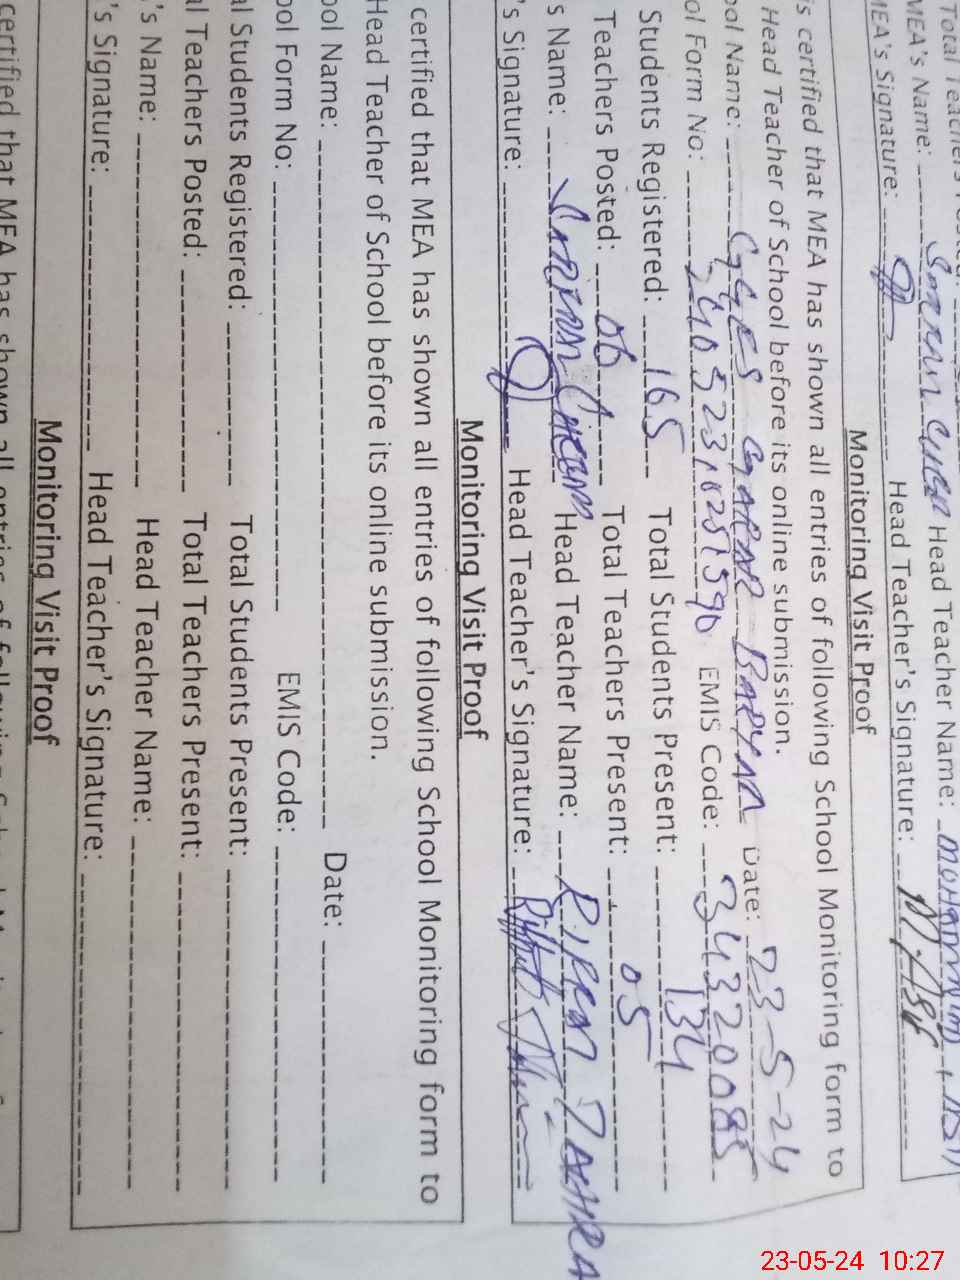 Total Teachers
MEA's Name: Head Teacher Name: MOHAMMAD
MEA's Signature: Head Teacher's Signature:
Monitoring Visit Proof
is certified that MEA has shown all entries of following School Monitoring form to
Head Teacher of School before its online submission.
ool Name: GGES Date: 23-5-24
ol Form No: EMIS Code: 34320085
Students Registered: 165 Total Students Present: 134
Teachers Posted: 06 Total Teachers Present: 05
s Name: Head Teacher Name:
's Signature: Head Teacher's Signature:
Monitoring Visit Proof
certified that MEA has shown all entries of following School Monitoring form to
Head Teacher of School before its online submission.
ool Name: Date:
ool Form No: EMIS Code:
al Students Registered: Total Students Present:
al Teachers Posted: Total Teachers Present:
's Name: Head Teacher Name:
's Signature: Head Teacher's Signature:
Monitoring Visit Proof
certified that MEA has shown all entries of following
23-05-24 10:27